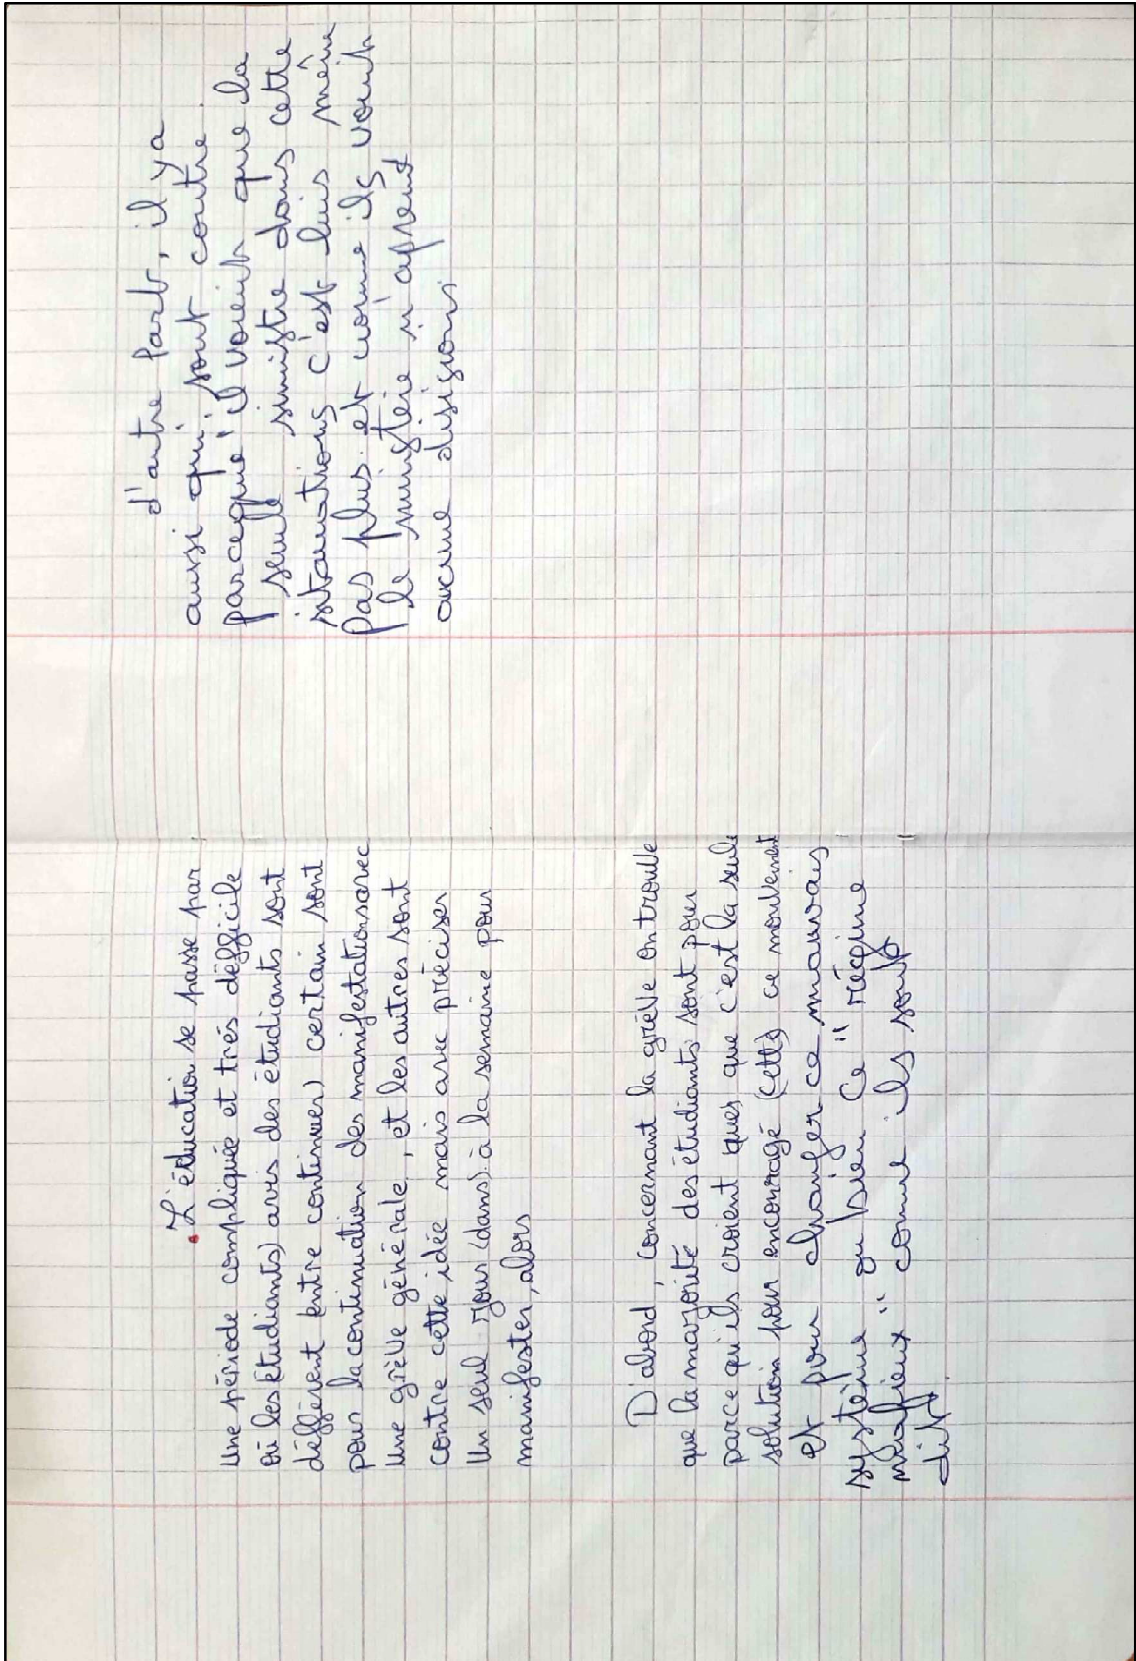 L'éducation se passe par
Une période compliquée et trés défficile
où les (étudiants) avis des étudiants sont
défférent (entre continuer) certain sont
pour la continuation des manifestations avec
Une grève générale, et les autres sont
contre cette idée mais avec préciser
Un seul jour (dans) à la semaine pour
manifester, alors
D'abord, concernant la grève on trouve
que la majorité des étudiants sont pour
parce qu'ils croient que c'est la seule
solution pour encouragé (cette) ce mouvement
et pour changer ce mauvais
système ou bien Ce " régime
mafieux " comme ils sont
dit.
d'autre Part, il ya
aussi qui sont contre.
parceque' il voient que la
seule sinistre dans cette
sitawtions c'est luis même
Pas plus. et comme ils voient
le ministère n'aprend
aucune disisions